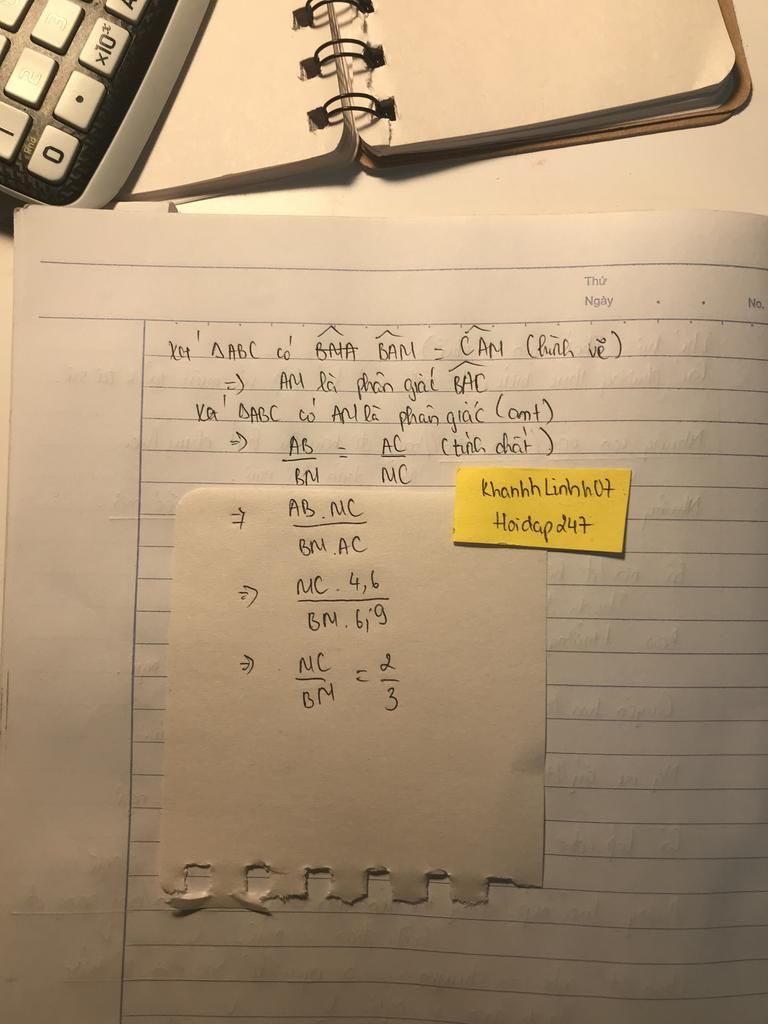 x10ˣ
3
2
•
0
End
Thứ
Ngày . . No.
Xét ΔABC có B̂MA B̂AM = ĈAM (hình vẽ)
=> AM là phân giác B̂AC
Xét ΔABC có AM là phân giác (cmt)
=> AB/BM = AC/MC (tính chất)
=> AB.MC/BM.AC
=> MC.4,6/BM.6,9
=> MC/BM = 2/3
KhanhhLinhh07
Hoidap247